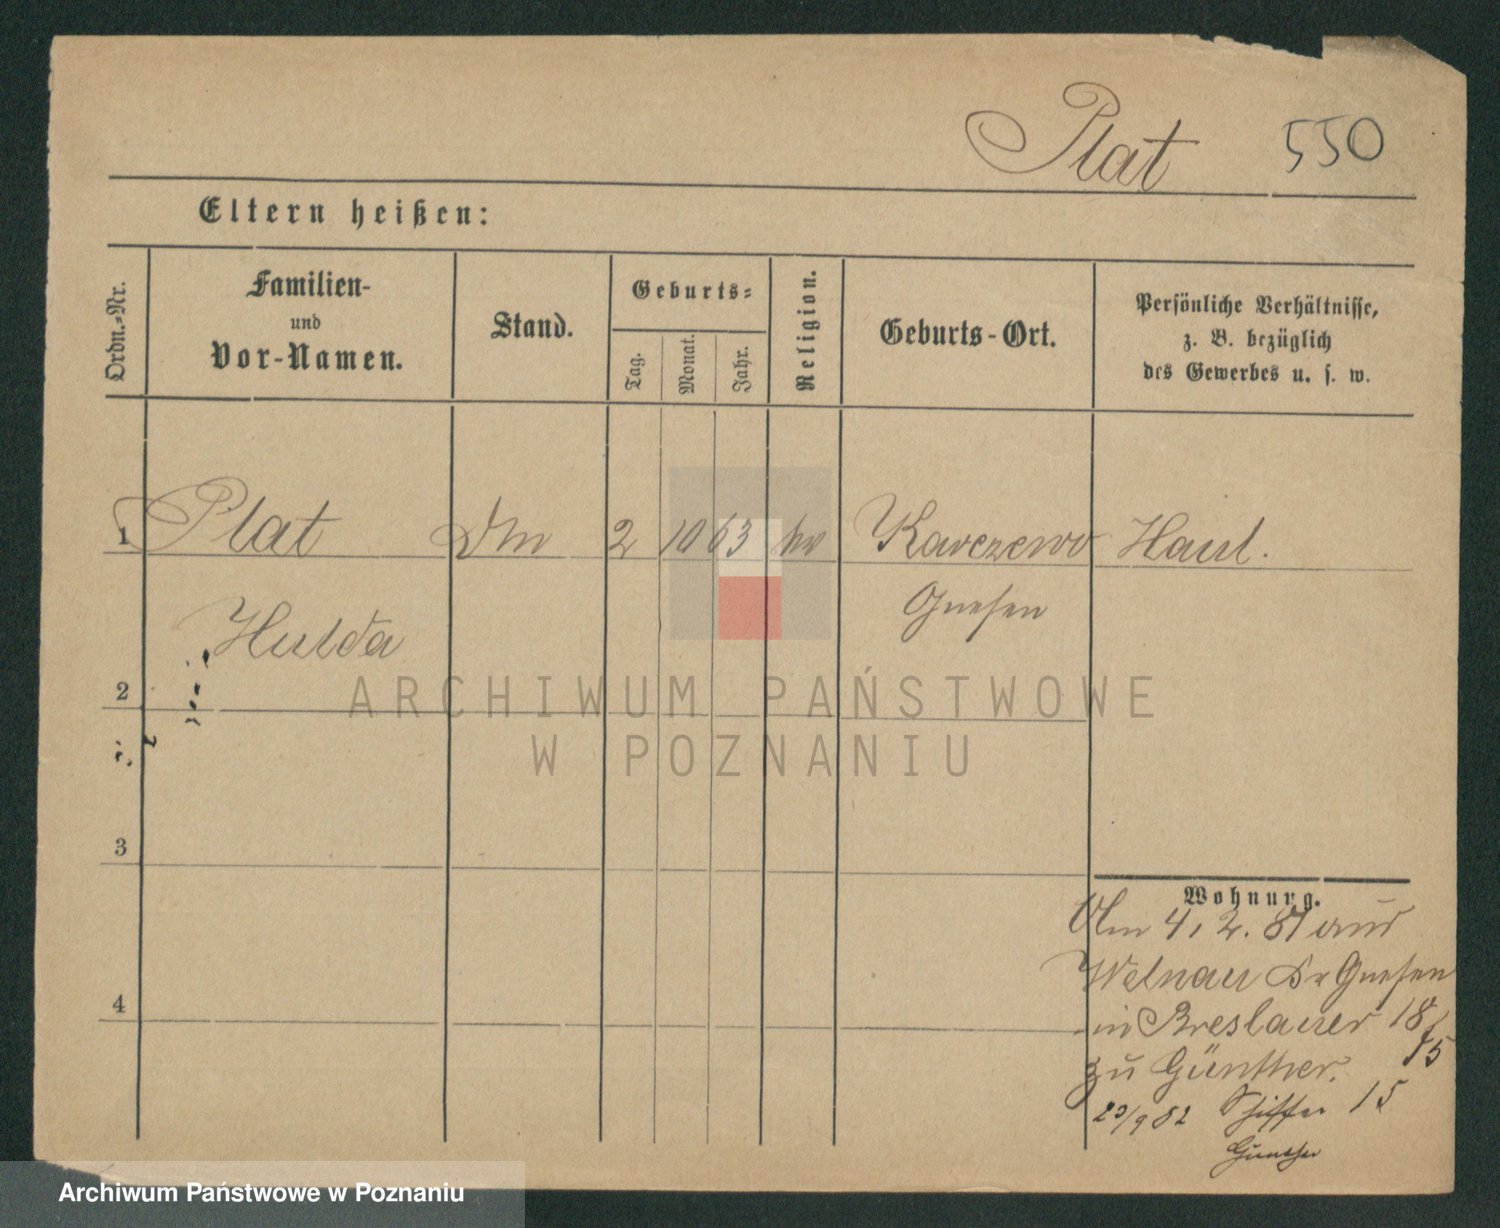 Plat 550
Eltern heißen:
Ordn.-Nr.
Familien-
und
Vor-Namen.
Stand.
Geburts-
Tag.
Monat.
Jahr.
Religion.
Geburts-Ort.
Persönliche Verhältnisse,
z. B. bezüglich
des Gewerbes u. s. w.
1 Plat 2 10 63 Karczewo
Gnesen
Hulda
2
3
4
Wohnung.
Am 4. 2. 81 aus
Welnau Gnesen
in Breslauer 18
zu Günther. 15
23/9 82 15
Günther
ARCHIWUM PAŃSTWOWE
W POZNANIU
Archiwum Państwowe w Poznaniu